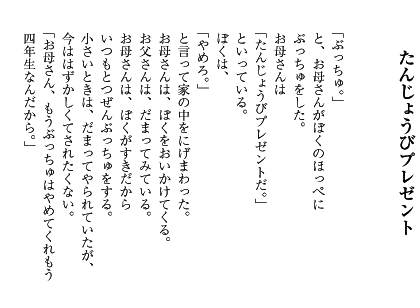 たんじょうびプレゼント
「ぶっちゅ。」
と、お母さんがぼくのほっぺに
ぶっちゅをした。
お母さんは
「たんじょうびプレゼントだ。」
といっている。
ぼくは、
「やめろ。」
と言って家の中をにげまわった。
お母さんは、ぼくをおいかけてくる。
お父さんは、だまってみている。
お母さんは、ぼくがすきだから
いつもとつぜんぶっちゅをする。
小さいときは、だまってやられていたが、
今ははずかしくてされたくない。
「お母さん、もうぶっちゅはやめてくれもう
四年生なんだから。」